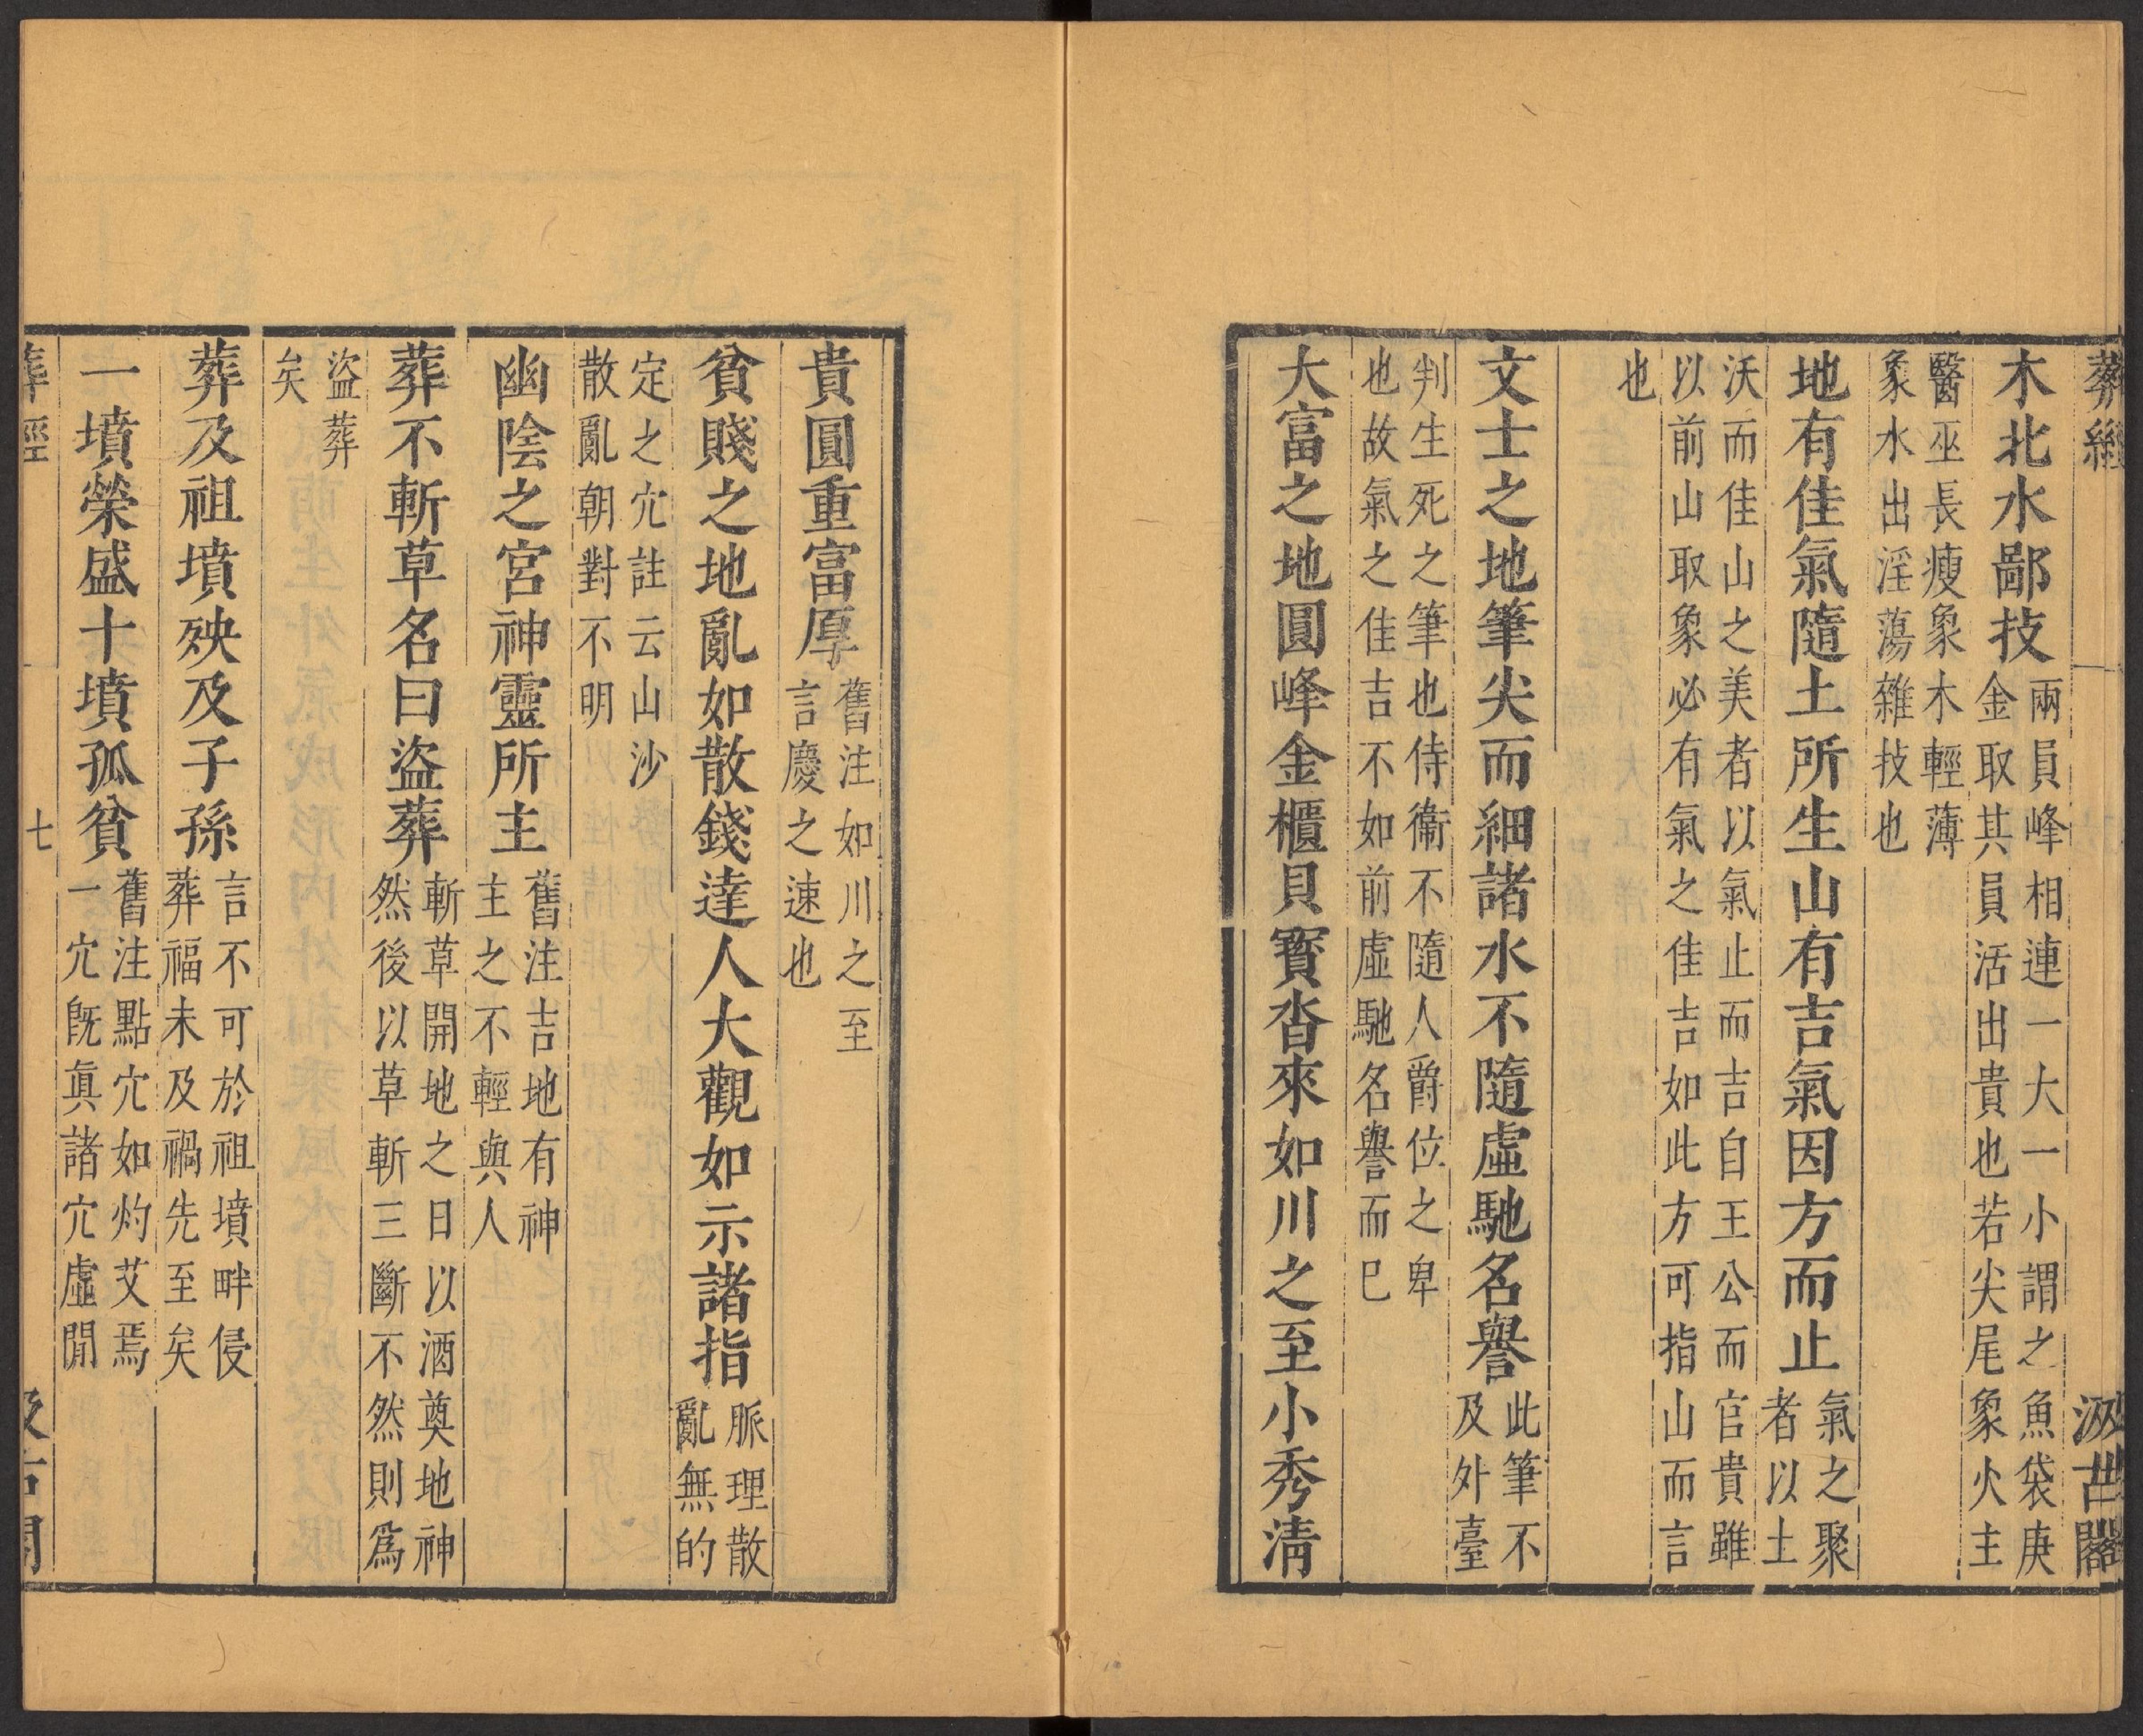 葬經 汲古閣
木北水鄙技 兩員峰相連一大一小謂之魚袋庚
金取其員活出貴也若尖尾象火主
醫巫長瘦象木輕薄
象水出淫蕩雜技也
地有佳氣隨土所生山有吉氣因方而止 氣之聚
者以土
沃而佳山之美者以氣止而吉自王公而官貴雖
以前山取象必有氣之佳吉如此方可指山而言
也
文士之地筆尖而細諸水不隨虛馳名譽 此筆不
及外臺
判生死之筆也侍衞不隨人爵位之卑
也故氣之佳吉不如前虛馳名譽而巳
大富之地圓峰金櫃貝寳沓來如川之至小秀淸
貴圓重富厚 舊注如川之至
言慶之速也
貧賤之地亂如散錢達人大觀如示諸指 脈理散
亂無的
定之穴註云山沙
散亂朝對不明
幽陰之宮神靈所主 舊注吉地有神
主之不輕與人
葬不斬草名曰盜葬 斬草開地之日以酒奠地神
然後以草斬三斷不然則爲
盜葬
矣
葬及祖墳殃及子孫 言不可於祖墳畔侵
葬福未及禍先至矣
一墳榮盛十墳孤貧 舊注點穴如灼艾焉
一穴旣眞諸穴虛閒
葬經 七 汲古閣